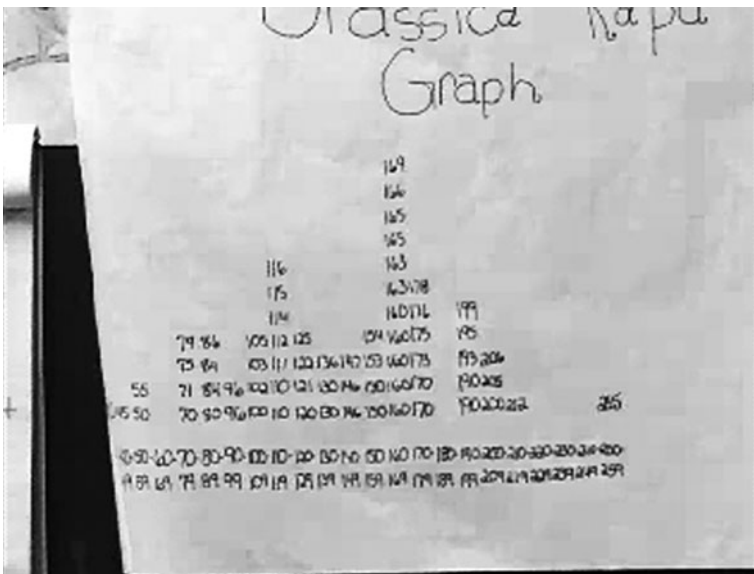 Brassica Rapa
Graph
169
166
165
165
116 163
115 163 178
114 160 176 199
79 86 105 112 125 154 160 175 195
75 84 103 111 122 136 147 153 160 173 193 206
55 71 84 96 102 110 121 130 146 150 160 170 190 205
45 50 70 80 96 100 110 120 130 146 150 160 170 190 200 212 255
40- 50- 60- 70- 80- 90- 100 110- 120 130 140 150 160 170- 180- 190-200- 210-220-230-240-250-
49 59 69 79 89 99 109 119 129 139 149 159 169 179 189 199 209 219 229 239 249 259